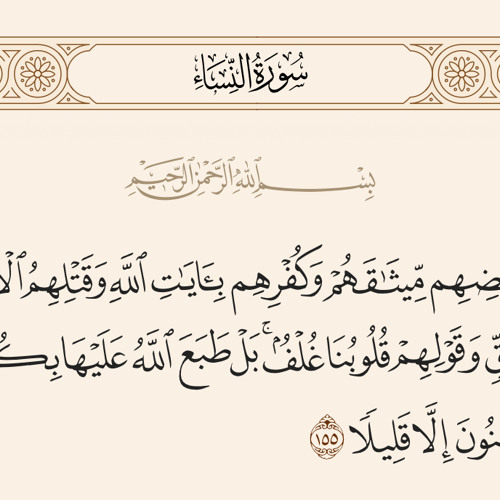 سُورَةُ النِّسَاءِ
بِسْمِ ٱللَّهِ ٱلرَّحْمَٰنِ ٱلرَّحِيمِ
ضِهِم مِّيثَٰقَهُمْ وَكُفْرِهِم بِـَٔايَٰتِ ٱللَّهِ وَقَتْلِهِمُ ٱلْأ
قٍّ وَقَوْلِهِمْ قُلُوبُنَا غُلْفٌۢ ۚ بَلْ طَبَعَ ٱللَّهُ عَلَيْهَا بِكُ
نُونَ إِلَّا قَلِيلًا ١٥٥